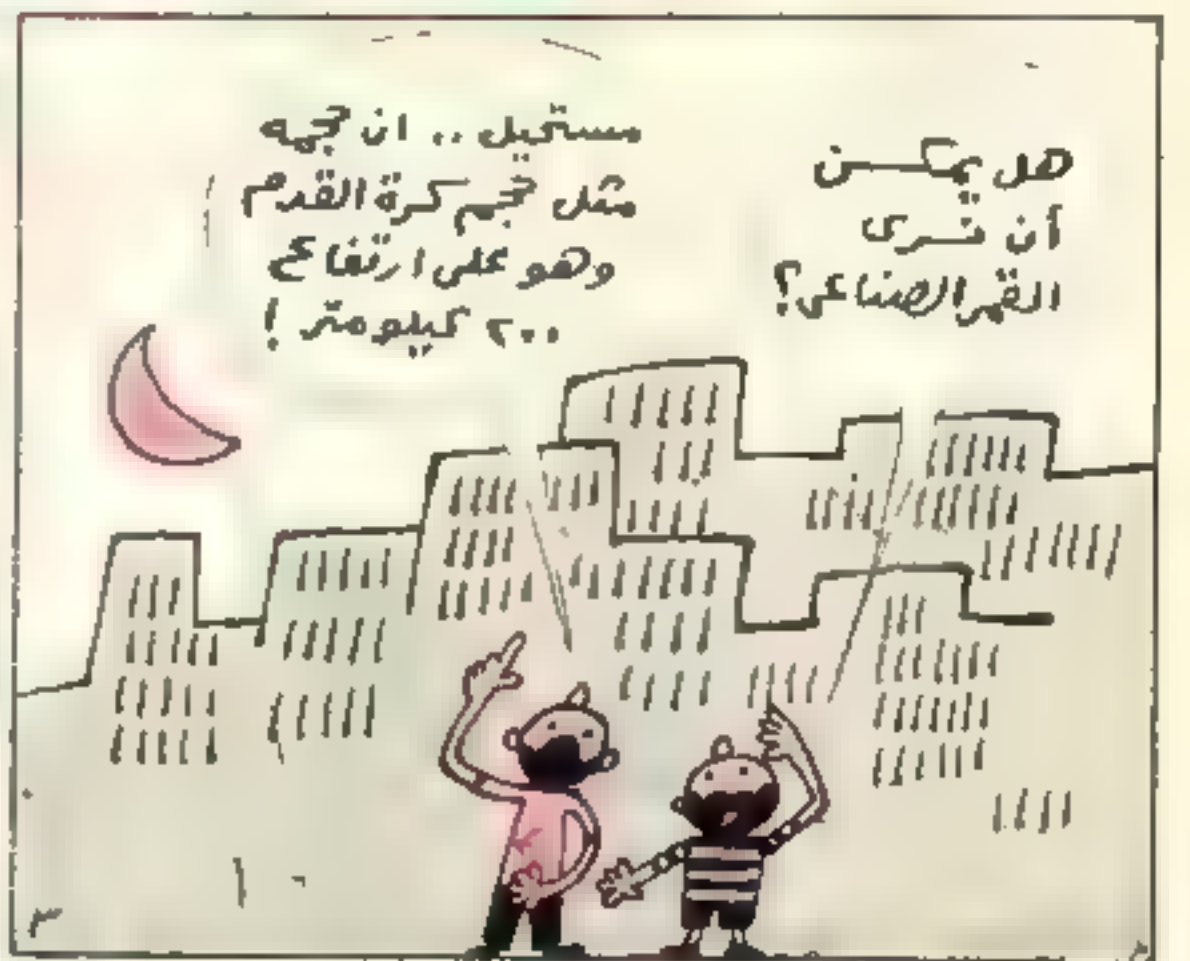 هل يمكن
أن نرى
القمر الصناعى؟
مستحيل .. ان حجمه
مثل حجم كرة القدم
وهو على ارتفاع
٢٠٠ كيلومتر !